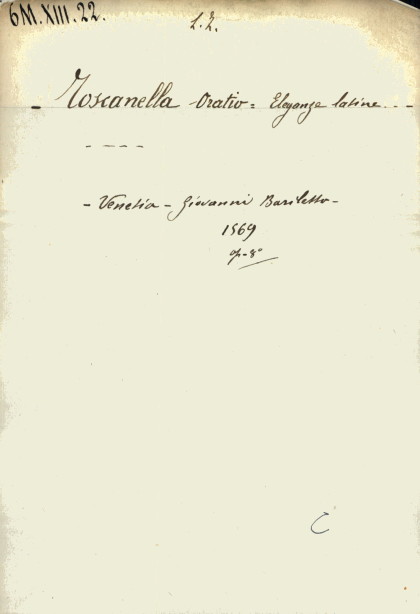 6M.XIII.22.
L.I.
Toscanella Oratio = Eleganze latine. - -
- - - -
- Venetia - Giovanni Bariletto -
1569
in-8°
C